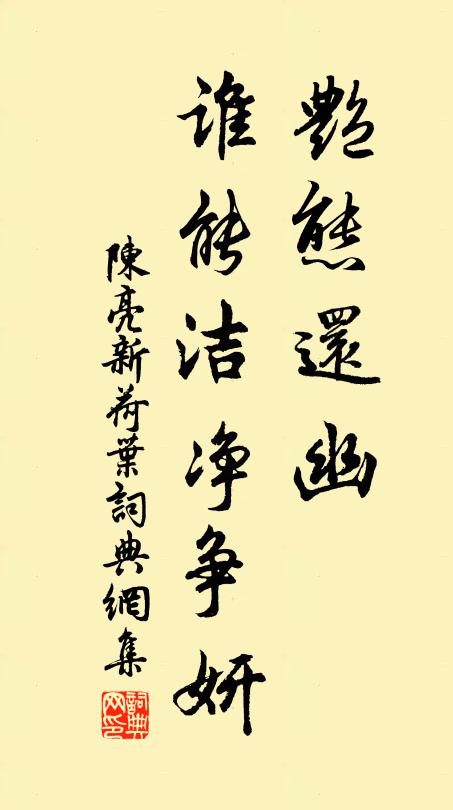 艷態還幽
谁能洁净争妍
陳亮新荷葉詞典網集
詞典网印